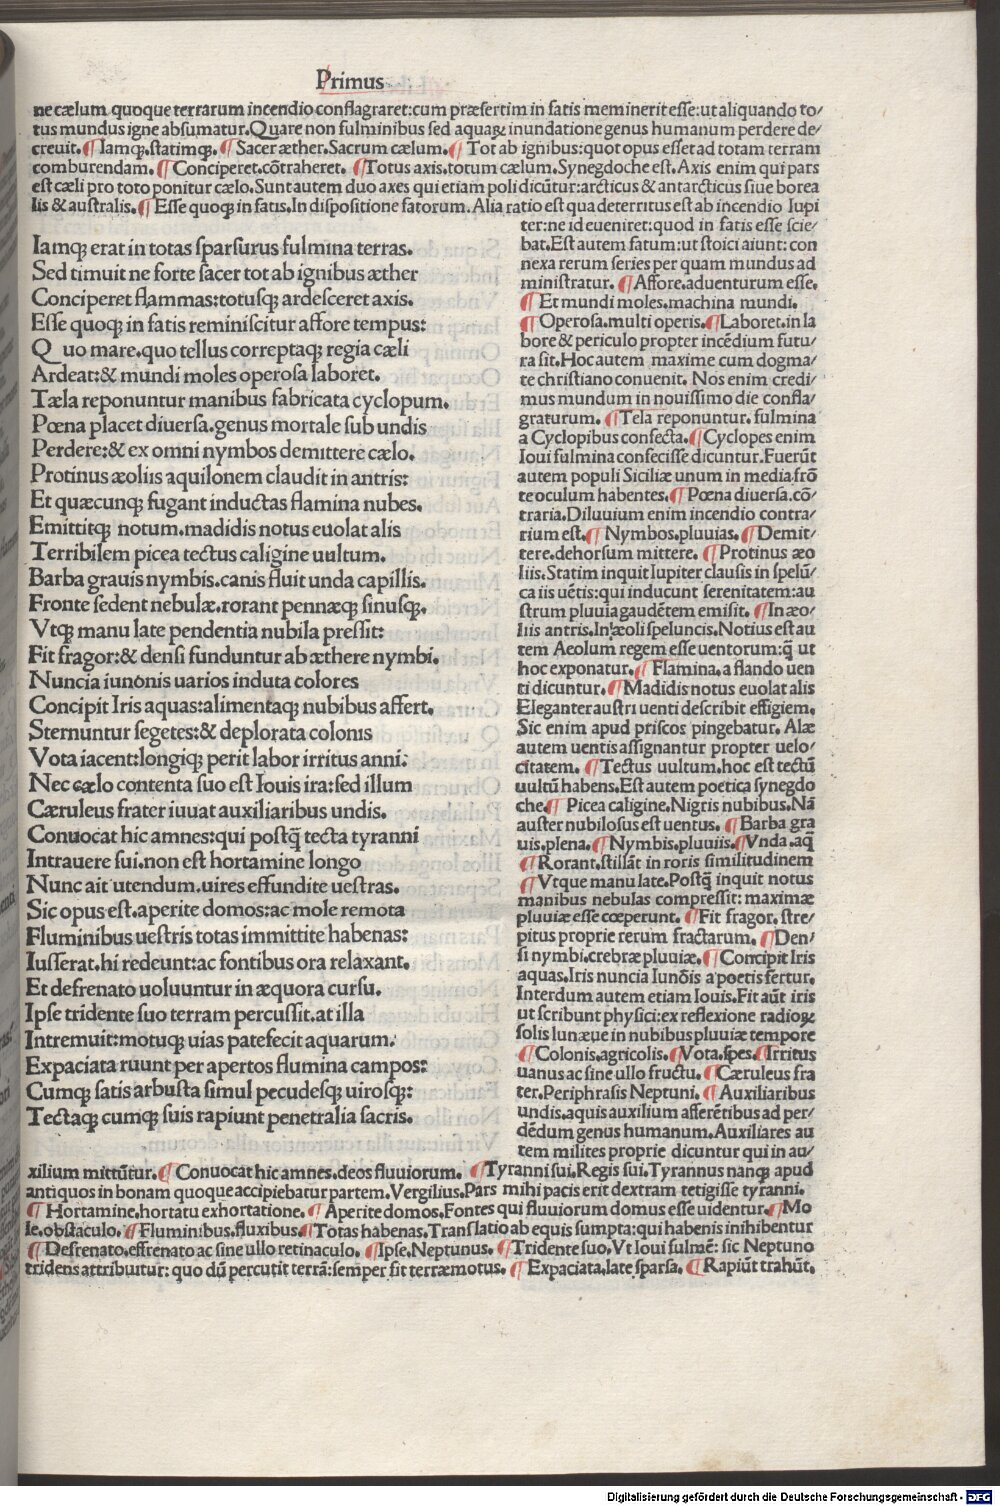 Primus
ne cælum quoque terrarum incendio conflagraret:cum præsertim in fatis meminerit esse:ut aliquando to/
tus mundus igne absumatur.Quare non fulminibus sed aquaꝝ inundatione genus humanum perdere de/
creuit.¶Iamqꝫ.statimqꝫ. ¶Sacer æther.Sacrum cælum.¶ Tot ab ignibus:quot opus esset ad totam terram
comburendam. ¶Conciperet.cōtraheret. ¶Totus axis.totum cælum.Synegdoche est.Axis enim qui pars
est cæli pro toto ponitur cælo.Sunt autem duo axes qui etiam poli dicūtur:arcticus & antarcticus siue borea
lis & australis.¶Esse quoqꝫ in fatis.In dispositione fatorum.Alia ratio est qua deterritus est ab incendio Iupi
Iamqꝫ erat in totas sparsurus fulmina terras.
Sed timuit ne forte sacer tot ab ignibus æther
Conciperet flammas:totusqꝫ ardesceret axis.
Esse quoqꝫ in fatis reminiscitur affore tempus:
Q uo mare.quo tellus correptaqꝫ regia cæli
Ardeat:& mundi moles operosa laboret.
Tæla reponuntur manibus fabricata cyclopum.
Pœna placet diuersa.genus mortale sub undis
Perdere:& ex omni nymbos demittere cælo.
Protinus æoliis aquilonem claudit in antris:
Et quæcunqꝫ fugant inductas flamina nubes.
Emittitqꝫ notum.madidis notus euolat alis
Terribilem picea tectus caligine uultum.
Barba grauis nymbis.canis fluit unda capillis.
Fronte sedent nebulæ.rorant pennæqꝫ sinusqꝫ.
Vtqꝫ manu late pendentia nubila pressit:
Fit fragor:& densi funduntur ab æthere nymbi.
Nuncia iunonis uarios induta colores
Concipit Iris aquas:alimentaqꝫ nubibus affert.
Sternuntur segetes:& deplorata colonis
Vota iacent:longiqꝫ perit labor irritus anni.
Nec cælo contenta suo est Iouis ira:sed illum
Cæruleus frater iuuat auxiliaribus undis.
Conuocat hic amnes:qui postq̄ tecta tyranni
Intrauere sui.non est hortamine longo
Nunc ait utendum.uires effundite uestras.
Sic opus est.aperite domos:ac mole remota
Fluminibus uestris totas immittite habenas:
Iusserat.hi redeunt:ac fontibus ora relaxant.
Et defrenato uoluuntur in æquora cursu.
Ipse tridente suo terram percussit.at illa
Intremuit:motuqꝫ uias patefecit aquarum.
Expaciata ruunt per apertos flumina campos:
Cumqꝫ satis arbusta simul pecudesqꝫ uirosqꝫ:
Tectaqꝫ cumqꝫ suis rapiunt penetralia sacris.
ter:ne id eueniret:quod in fatis esse scie/
bat.Est autem fatum:ut stoici aiunt:con
nexa rerum series per quam mundus ad
ministratur. ¶Affore.aduenturum esse.
¶Et mundi moles.machina mundi.
¶Operosa.multi operis.¶Laboret.in la
bore & periculo propter incēdium futu/
ra sit.Hoc autem maxime cum dogma/
te christiano conuenit. Nos enim credi/
mus mundum in nouissimo die confla/
graturum. ¶Tela reponuntur. fulmina
a Cyclopibus confecta.¶Cyclopes enim
Ioui fulmina confecisse dicuntur.Fuerūt
autem populi Siciliæ unum in media frō
te oculum habentes.¶Pœna diuersa.cō/
traria.Diluuium enim incendio contra/
rium est.¶ Nymbos.pluuias. ¶Demit/
tere.dehorsum mittere. ¶Protinus æo
liis.Statim inquit Iupiter clausis in spelū/
ca iis uētis:qui inducunt serenitatem:au
strum pluuia gaudētem emisit. ¶In æo/
liis antris.In æoli speluncis.Notius est au
tem Aeolum regem esse uentorum:q̄ ut
hoc exponatur. ¶ Flamina.a flando uen
ti dicuntur. ¶Madidis notus euolat alis
Eleganter austri uenti describit effigiem.
Sic enim apud priscos pingebatur. Alæ
autem uentis assignantur propter uelo/
citatem. ¶Tectus uultum.hoc est tectū
uultū habens.Est autem poetica synegdo
che.¶ Picea caligine.Nigris nubibus.Nā
auster nubilosus est uentus. ¶Barba gra
uis.plena.¶Nymbis.pluuiis.¶Vnda.aq̄
¶Rorant.stillāt in roris similitudinem
¶Vtque manu late.Postq̄ inquit notus
manibus nebulas compressit: maximæ
pluuiæ esse cœperunt. ¶Fit fragor. stre/
pitus proprie rerum fractarum. ¶Den/
si nymbi.crebræ pluuiæ. ¶Concipit Iris
aquas.Iris nuncia Iunōis a poetis fertur.
Interdum autem etiam Iouis.Fit aūt iris
ut scribunt physici:ex reflexione radioꝝ
solis lunæue in nubibus pluuiæ tempore
¶Colonis.agricolis.¶Vota.spes.¶Irritus
uanus ac sine ullo fructu. ¶Cæruleus fra
ter.Periphrasis Neptuni. ¶Auxiliaribus
undis.aquis auxilium afferētibus ad per/
dēdum genus humanum.Auxiliares au
tem milites proprie dicuntur qui in au/
xilium mittūtur.¶ Conuocat hic amnes.deos fluuiorum. ¶Tyranni sui.Regis sui.Tyrannus nanqꝫ apud
antiquos in bonam quoque accipiebatur partem.Vergilius.Pars mihi pacis erit dextram tetigisse tyranni.
¶Hortamine.hortatu exhortatione. ¶Aperite domos.Fontes qui fluuiorum domus esse uidentur.¶Mo
le.obstaculo. ¶Fluminibus.fluxibus.¶Totas habenas.Translatio ab equis sumpta:qui habenis inhibentur
¶Defrenato.effrenato ac sine ullo retinaculo. ¶Ipse.Neptunus. ¶Tridente suo.Vt Ioui fulmē: sic Neptuno
tridens attribuitur: quo dū percutit terrā:semper fit terræmotus. ¶Expaciata.late sparsa. ¶Rapiūt trahūt.
Digitalisierung gefördert durch die Deutsche Forschungsgemeinschaft - DFG